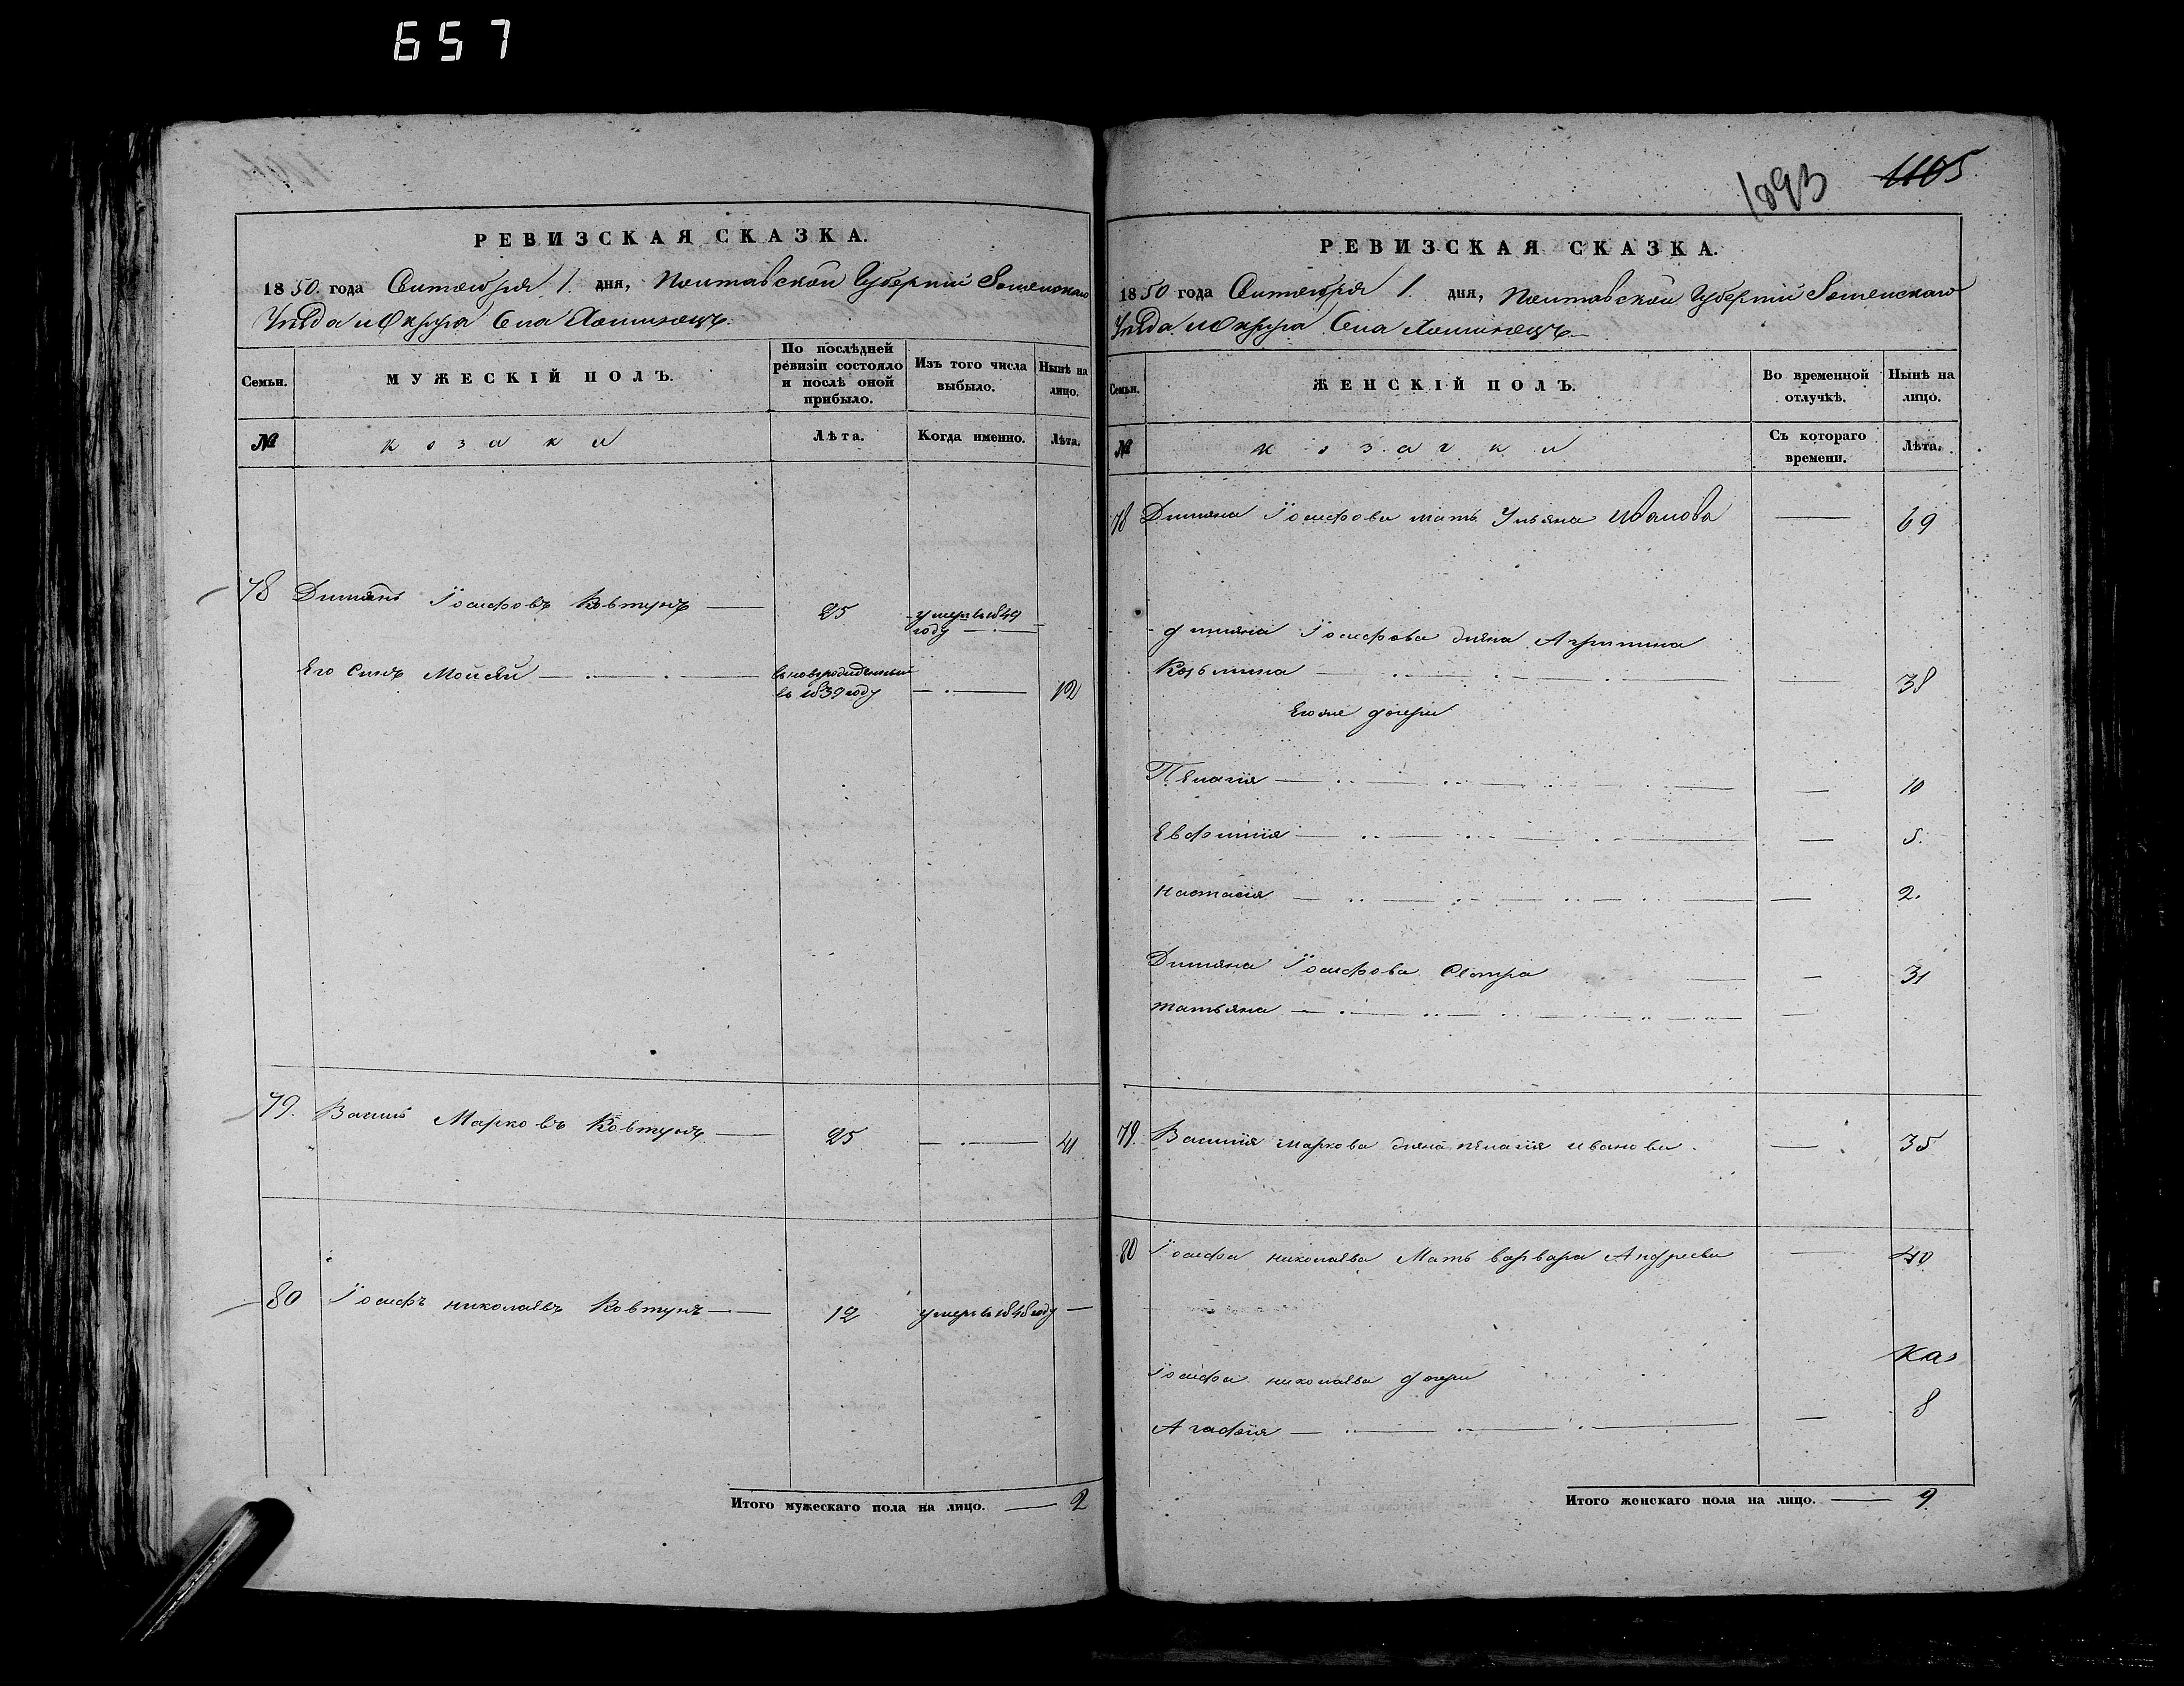 657
РЕВИЗСКАЯ СКАЗКА.
1850. года Сентября 1. дня, Полтавской Губернии Роменскаго
Уезда и Округа Села
Семьи.
МУЖЕСКІЙ ПОЛЪ.
По послѣдней ревизіи состояло и послѣ оной прибыло.
Изъ того числа выбыло.
Нынѣ на лицо.
№
козаки
Лѣта.
Когда именно.
Лѣта.
78 Демянъ Іосифовъ Ковтунъ — 25 умеръ в 1849 году —
Его Синъ Мойсей — в 1839 году — 12
79. Василь Марковъ Ковтунъ — 25 — 41
80 Іосифъ николаевъ Ковтунъ — 12 умеръ в 1848 году —
Итого мужескаго пола на лицо. — 2
1093 1105
РЕВИЗСКАЯ СКАЗКА.
1850 года Сентября 1. дня, Полтавской Губернии Роменскаго
Уезда и Округа Села
Семьи.
ЖЕНСКІЙ ПОЛЪ.
Во временной отлучкѣ.
Нынѣ на лицо.
№
козачки
Съ котораго времени.
Лѣта.
78 Демяна Іосифова мать Ульяна Иванова — 69
демяна Іосифова жена
Козьмина — 38
Его же дочери
Пелагія — 10
Евфимія — 5.
настасія — 2.
Демяна Іосифова Сестра — 31
татьяна —
79. Василія маркова жена пелагія иванова. — 35
80 Іосифа николаева Мать варвара Андреева — 40
Іосифа николаева дочери
Агафія — 8
Итого женскаго пола на лицо. — 9